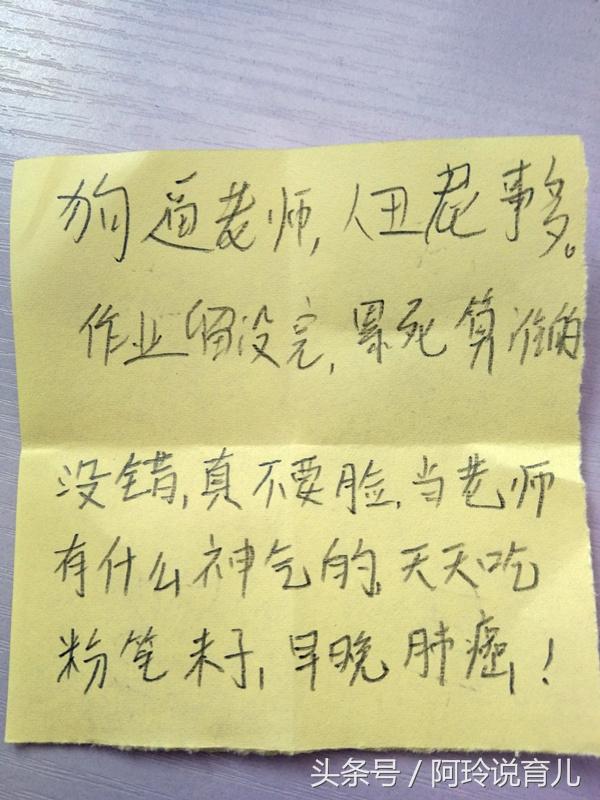 狗逼老师,人丑屁事多。
作业留没完,累死算谁的
没错,真不要脸,当老师
有什么神气的,天天吃
粉笔末子,早晚肺癌!
头条号 / 阿玲说育儿